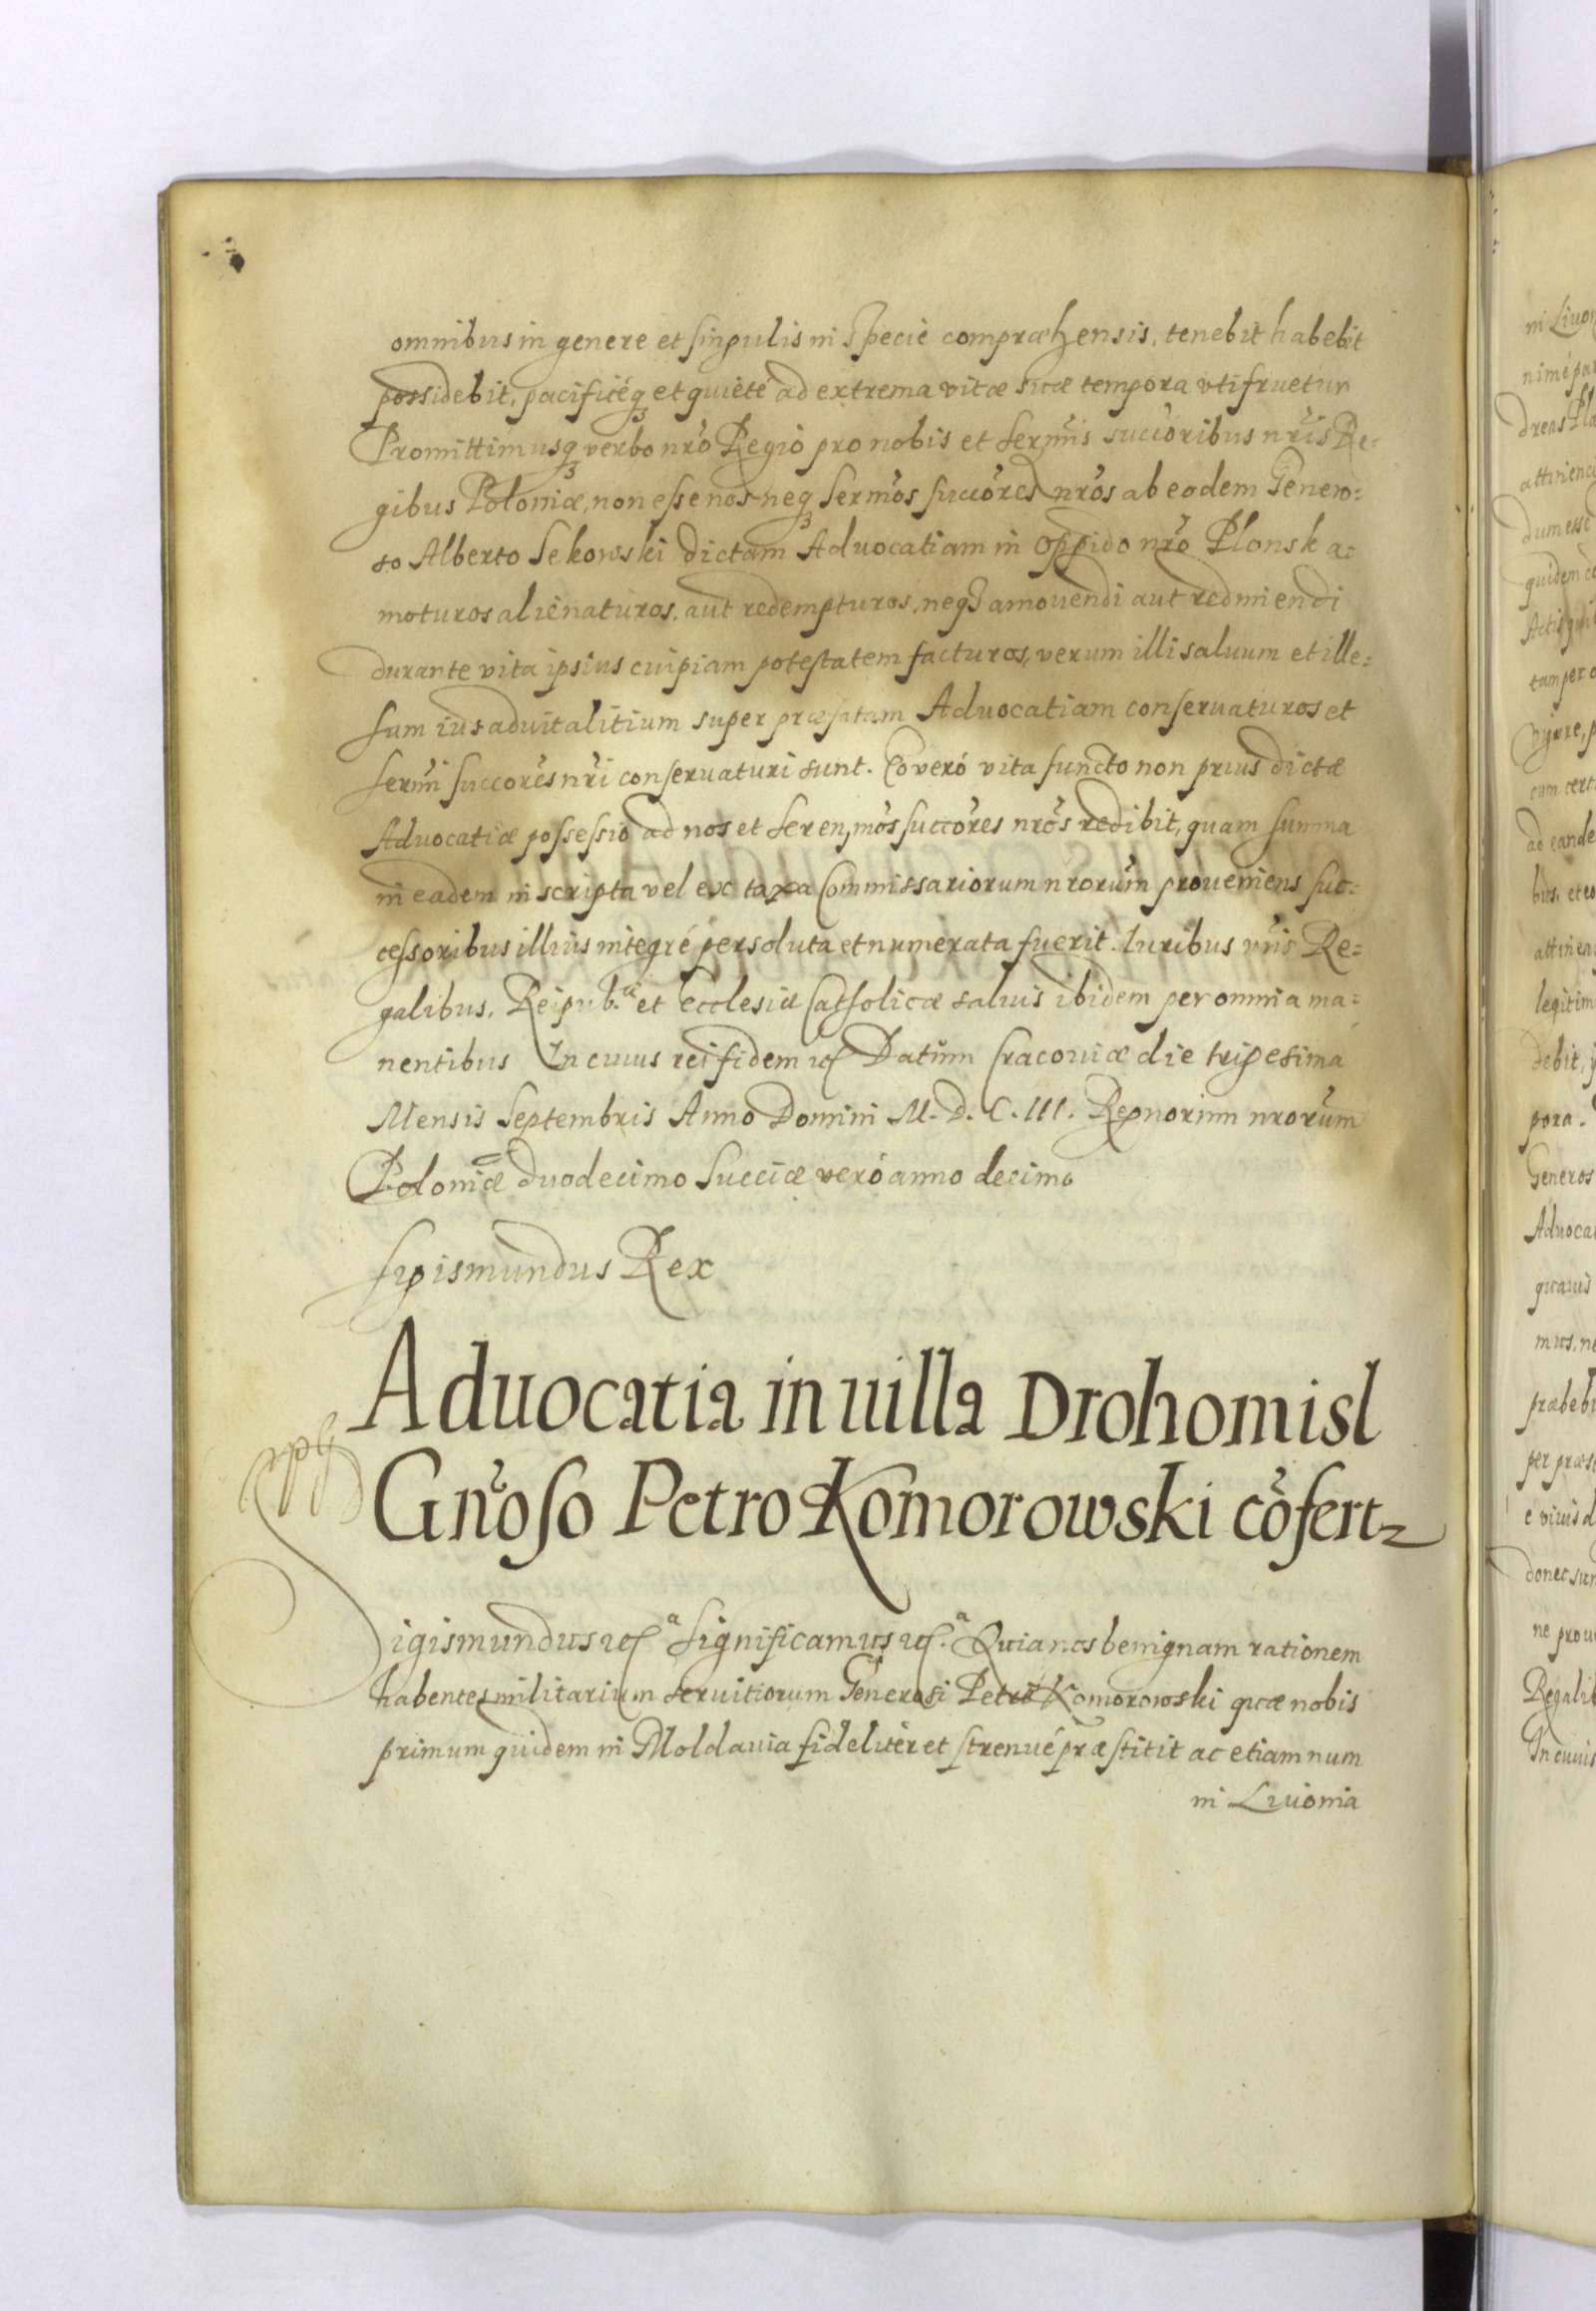 omnibus in genere et singulis in specie compræhensis, tenebit habebit
possidebit, pacificéq₃ et quieté ad extrema vitæ suæ tempora vtifruetur
Promittimusq₃ verbo nr̃o Regio pro nobis et Serm̃is succõribus nr̃is Re=
gibus Poloniæ, non esse nos neq₃ Serm̃os succõres nr̃os ab eodem Genero=
so Alberto Sekowski dictam Aduocatiam in oppido nr̃o Plonsk a=
moturos alienaturos, aut redempturos, neq₃ amouendi aut redimendi
durante vita ipsius cuipiam potestatem facturos, verum illi saluum et ille=
sum ius aduitalitium super præfatam Aduocatiam conseruaturos et
serm̃i succorẽs nr̃i conseruaturi sunt. Eo veró vita functo non prius dictæ
Aduocatiæ possessio ad nos et Serenm̃os succõres nr̃os redibit, quam summa
in eadem inscripta vel ex taxa Commissariorum nrorũm proueniens suc=
cessoribus illius integré persoluta et numerata fuerit. Iuribus nr̃is Re=
galibus, Reipub.ᵃᵉ et Ecclesiæ Catholicæ saluis ibidem per omnia ma=
nentibus In cuius rei fidem etc Datum Cracouiæ die trigesima
Mensis Septembris Anno Domini M. D. C. III. Regnorum nrorũm
Poloniæ duodecimo Sueciæ veró anno decimo
Sigismundus Rex
Aduocatia in uilla Drohomisl
Gnr̃oso Petro Komorowski cõfert₂
Sigismundus etc.ᵃ Significamus etc.ᵃ Quia nos benignam rationem
habentes militarium seruitiorum Generosi Petri Komorowski quæ nobis
primum quidem in Moldauia fideliter et strenué præstitit ac etiamnum
in Liuonia